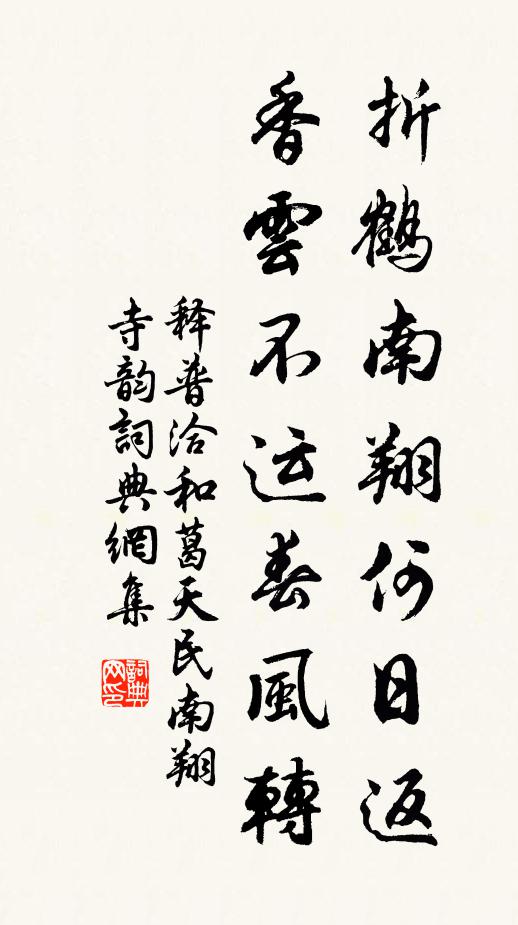 折鹤南翔何日返
香雲不运春風轉
释普洽和葛天民南翔
寺韵詞典網集
詞典网印